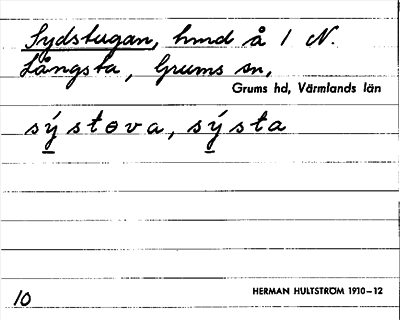 Sydstugan, hmd å 1 N.
Långsta, Grums sn,
Grums hd, Värmlands län
sý̱stɵva, sý̱sta
10
HERMAN HULTSTRÖM 1910–12